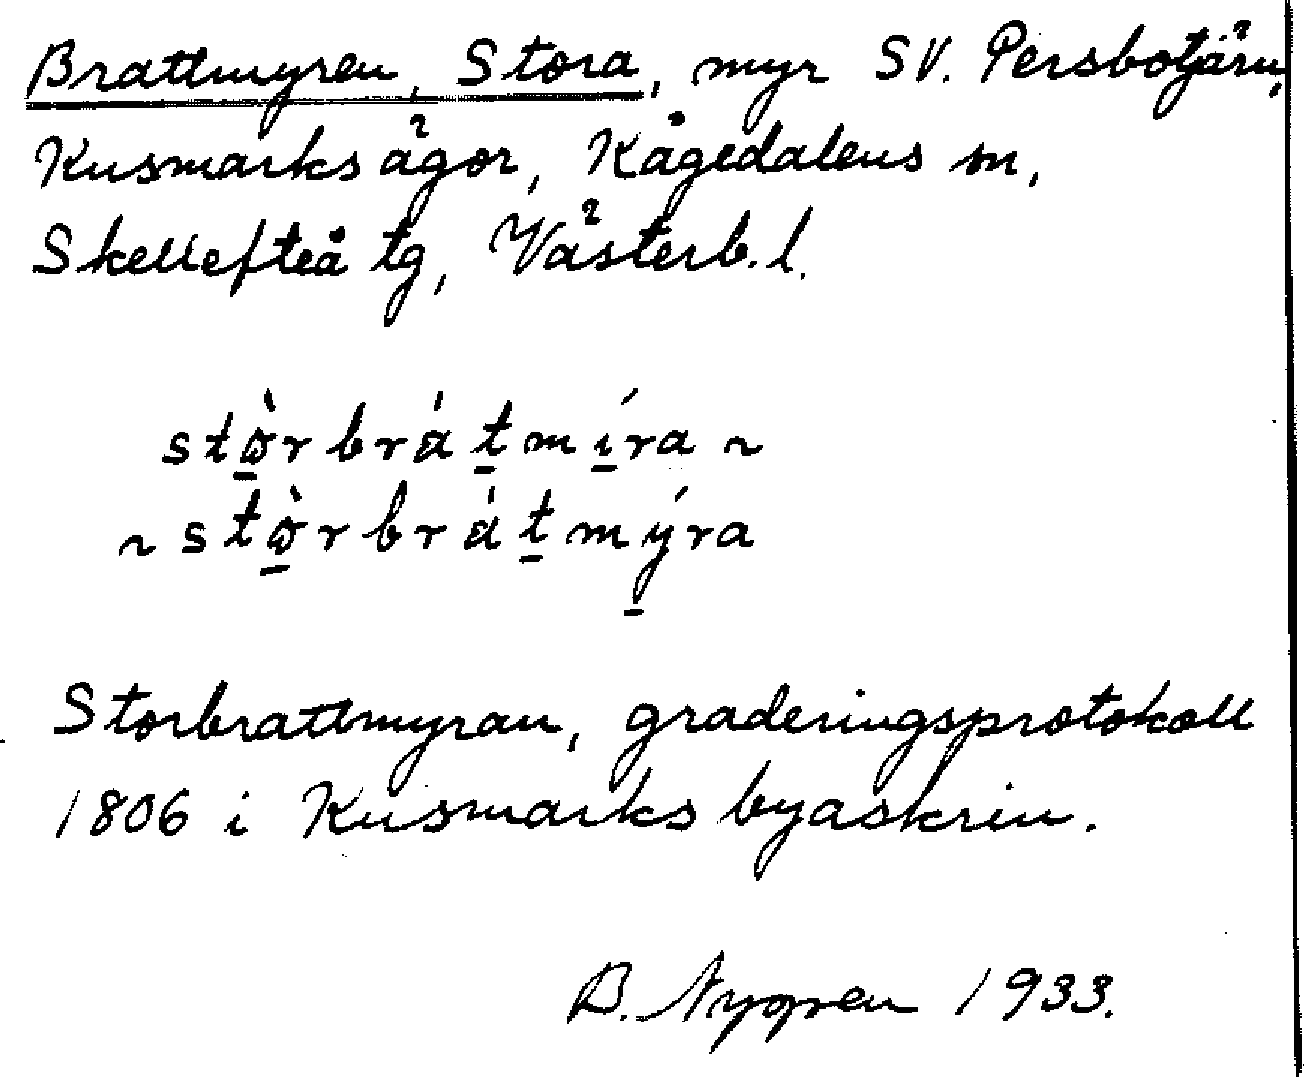 Brattmyren, Stora, myr SV. Persbotjärn,
Kusmarks ägor, Kågedalens sn,
Skellefteå tg, Västerb. l.
stø̠̀rbrát̠mí̠ra ~
~ stø̠̀rbrát̠mý̠ra
Storbrattmyran, graderingsprotokoll
1806 i Kusmarks byaskrin.
B. Nygren 1933.